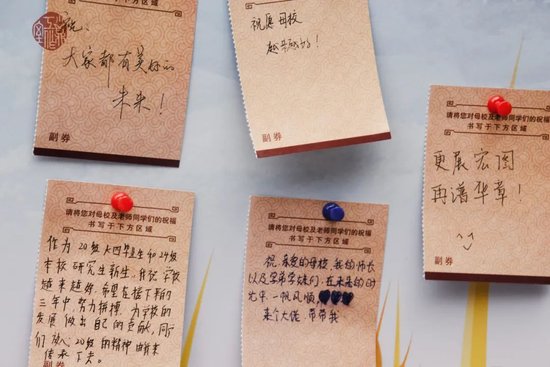 书写于下方区域
祝：
大家都有美好的
未来！
副券
祝愿母校
越来越好！
副券
请将您对母校及老师同学们的祝福
书写于下方区域
更展宏图
再谱华章！
副券
请将您对母校及老师同学们的祝福
书写于下方区域
作为20级大四毕业生和24级
本校研究生新生，祝愿学校
越来越好，希望在接下来的
三年中，努力拼搏，为学校的
发展做出自己的贡献，同
们放入20级的精神由我来
传承下去。
副券
请将您对母校及老师同学们的祝福
书写于下方区域
祝亲爱的母校，我的师长
以及学弟学妹们，在未来的时
光中，一帆风顺，
某个大佬，带带我
副券